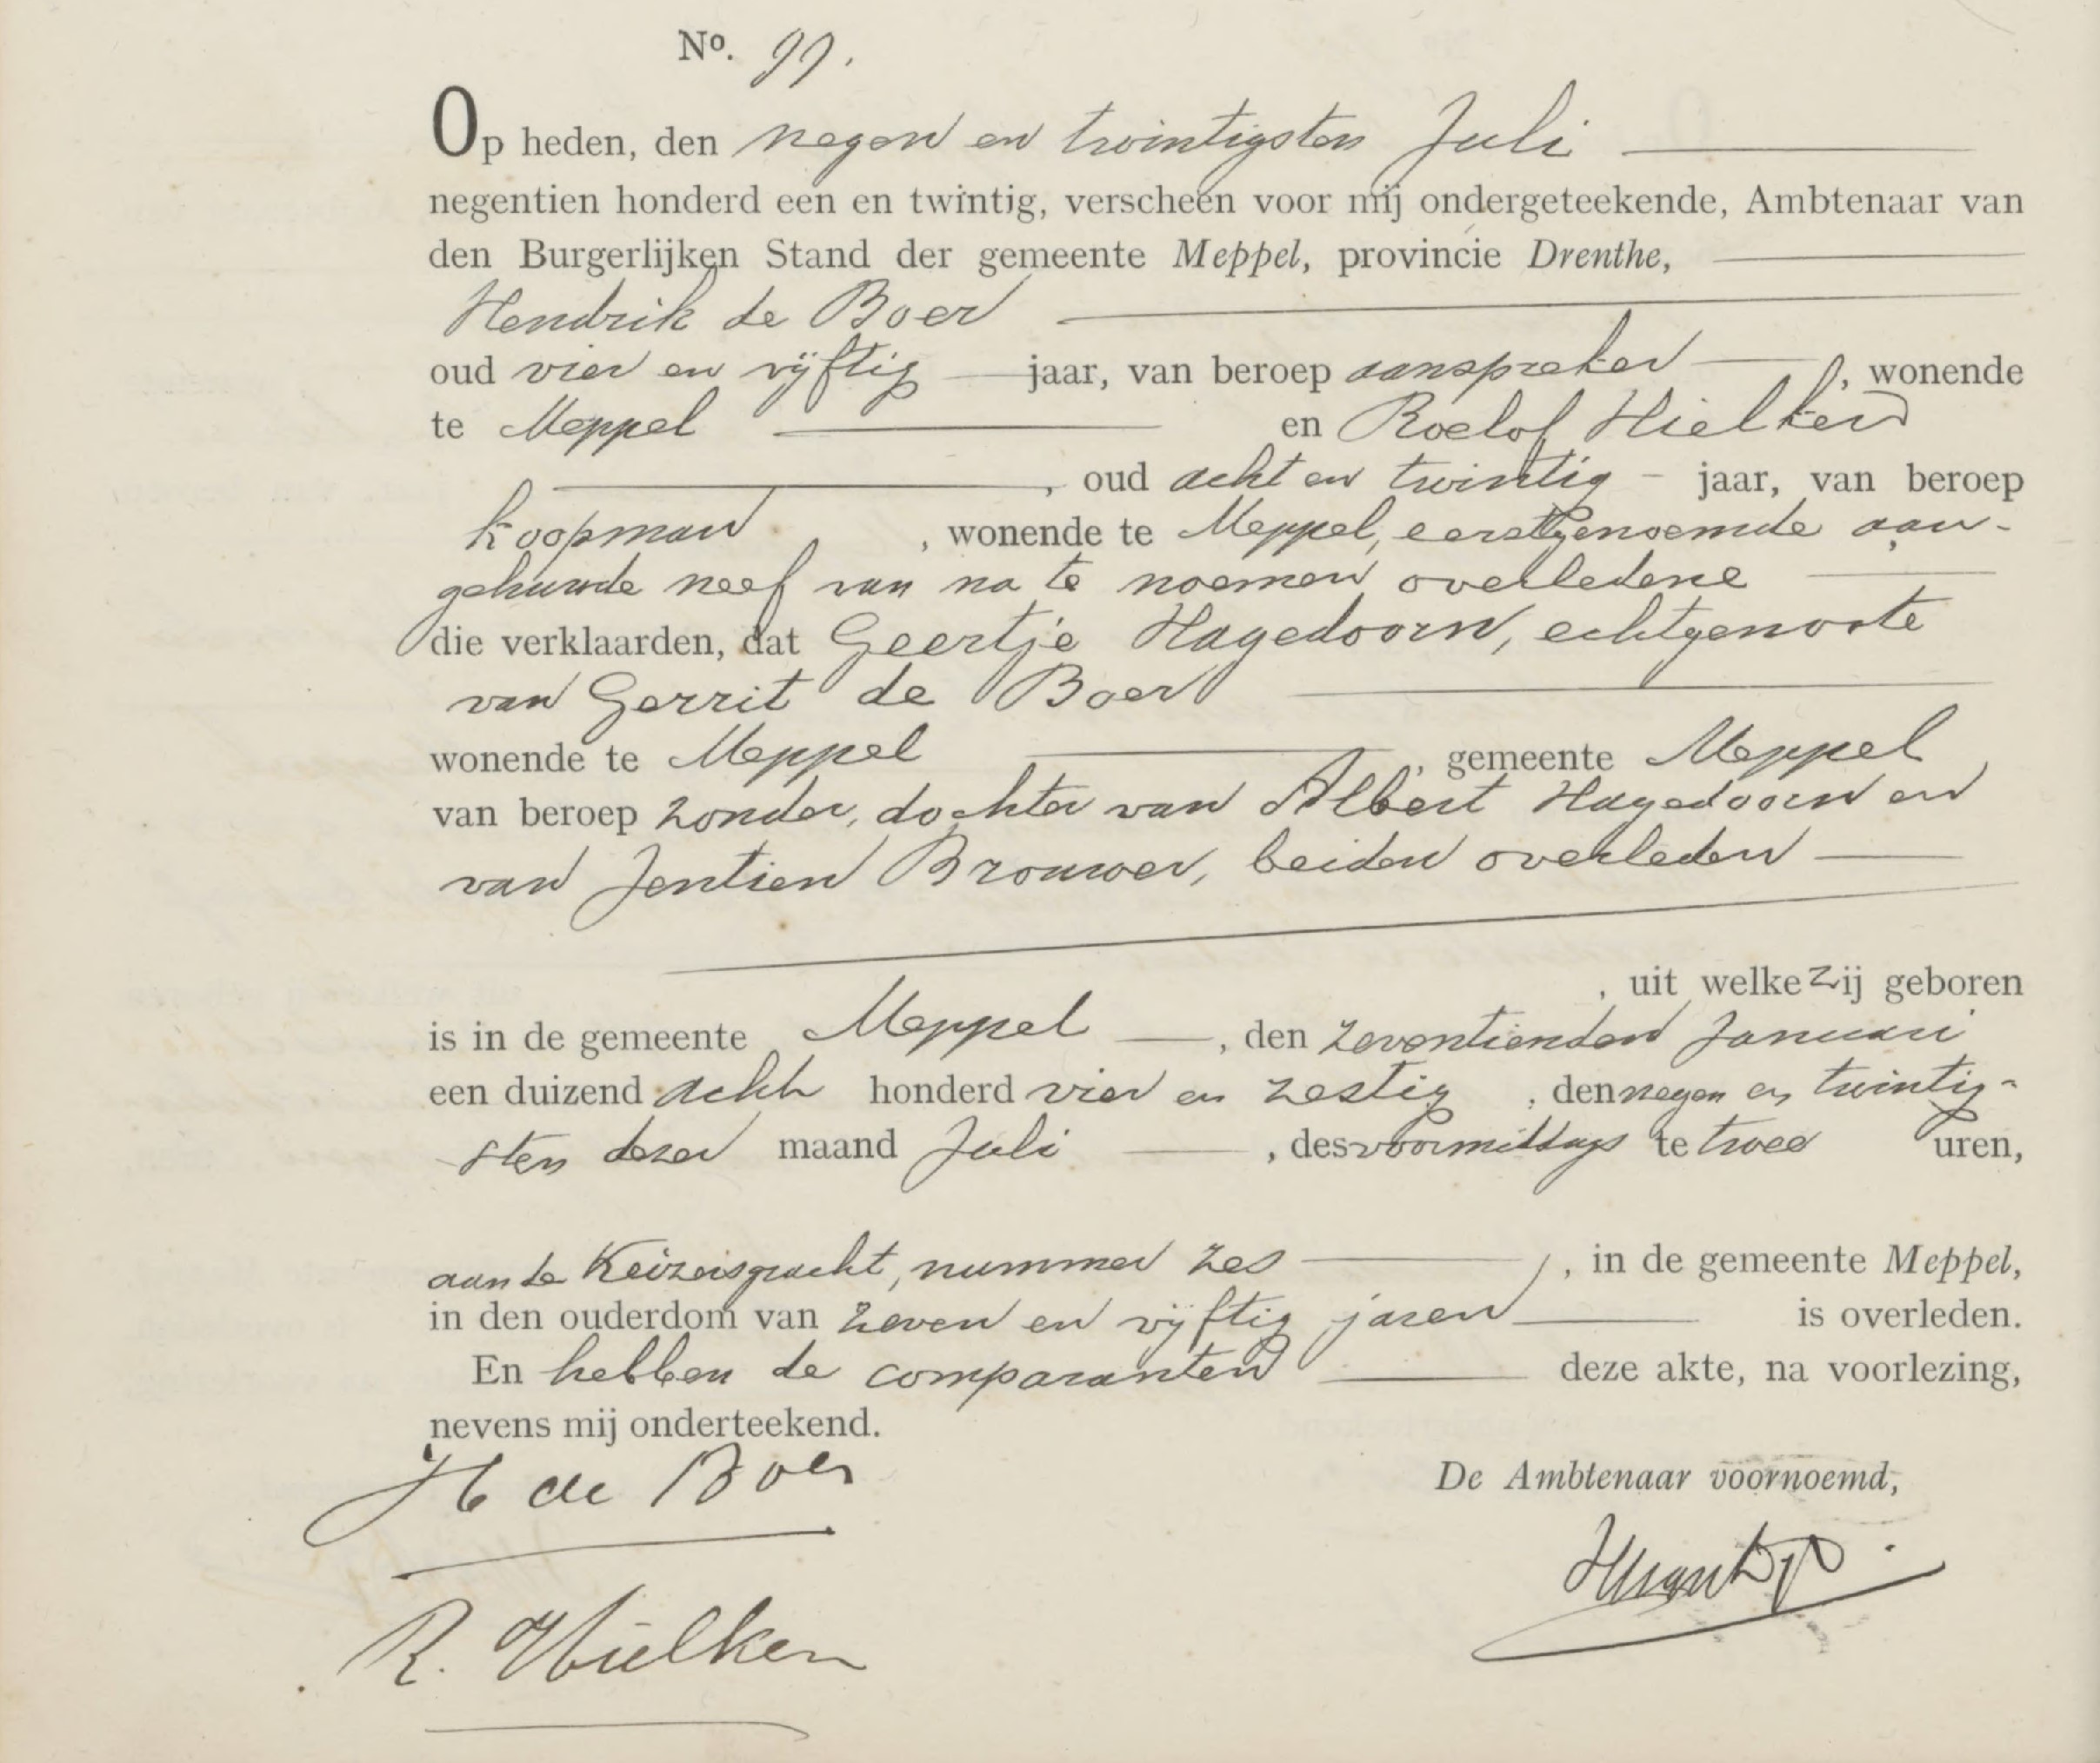 No. 99.
Op heden, den negen en twintigsten Juli
negentien honderd een en twintig, verscheen voor mij ondergeteekende, Ambtenaar van
den Burgerlijken Stand der gemeente Meppel, provincie Drenthe,
Hendrik de Boer
oud vier en vijftig jaar, van beroep aanspreker, wonende
te Meppel en Roelof Hielken
, oud acht en twintig - jaar, van beroep
koopman, wonende te Meppel, eerstgenoemde aan-
gehuwde neef van na te noemen overledene
die verklaarden, dat Geertje Hagedoorn, echtgenoote
van Gerrit de Boer
wonende te Meppel, gemeente Meppel,
van beroep zonder, dochter van Albert Hagedoorn en
van Jentien Brouwer, beiden overleden
, uit welke zij geboren
is in de gemeente Meppel, den zeventienden Januari
een duizend acht honderd vier en zestig, den negen en twintig-
sten dezer maand Juli, des voormiddags te twee uren,
aan de Keizersgracht, nummer zes, in de gemeente Meppel,
in den ouderdom van zeven en vijftig jaren is overleden.
En hebben de comparanten deze akte, na voorlezing,
nevens mij onderteekend.
H de Boer
De Ambtenaar voornoemd,
R. Hielken